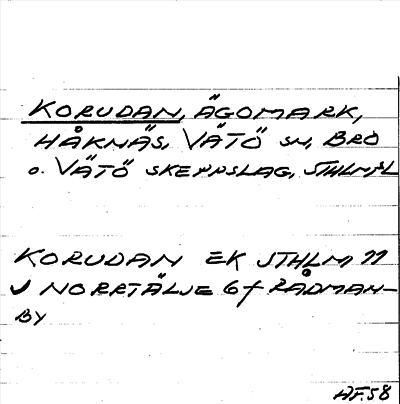 KORUDAN, ÄGOMARK,
HÅKNÄS, VÄTÖ SN, BRO
o. VÄTÖ SKEPPSLAG, STHLM:L
KORUDAN EK STHLM 77
V NORRTÄLJE 6f RÅDMAN-
BY
AF.58